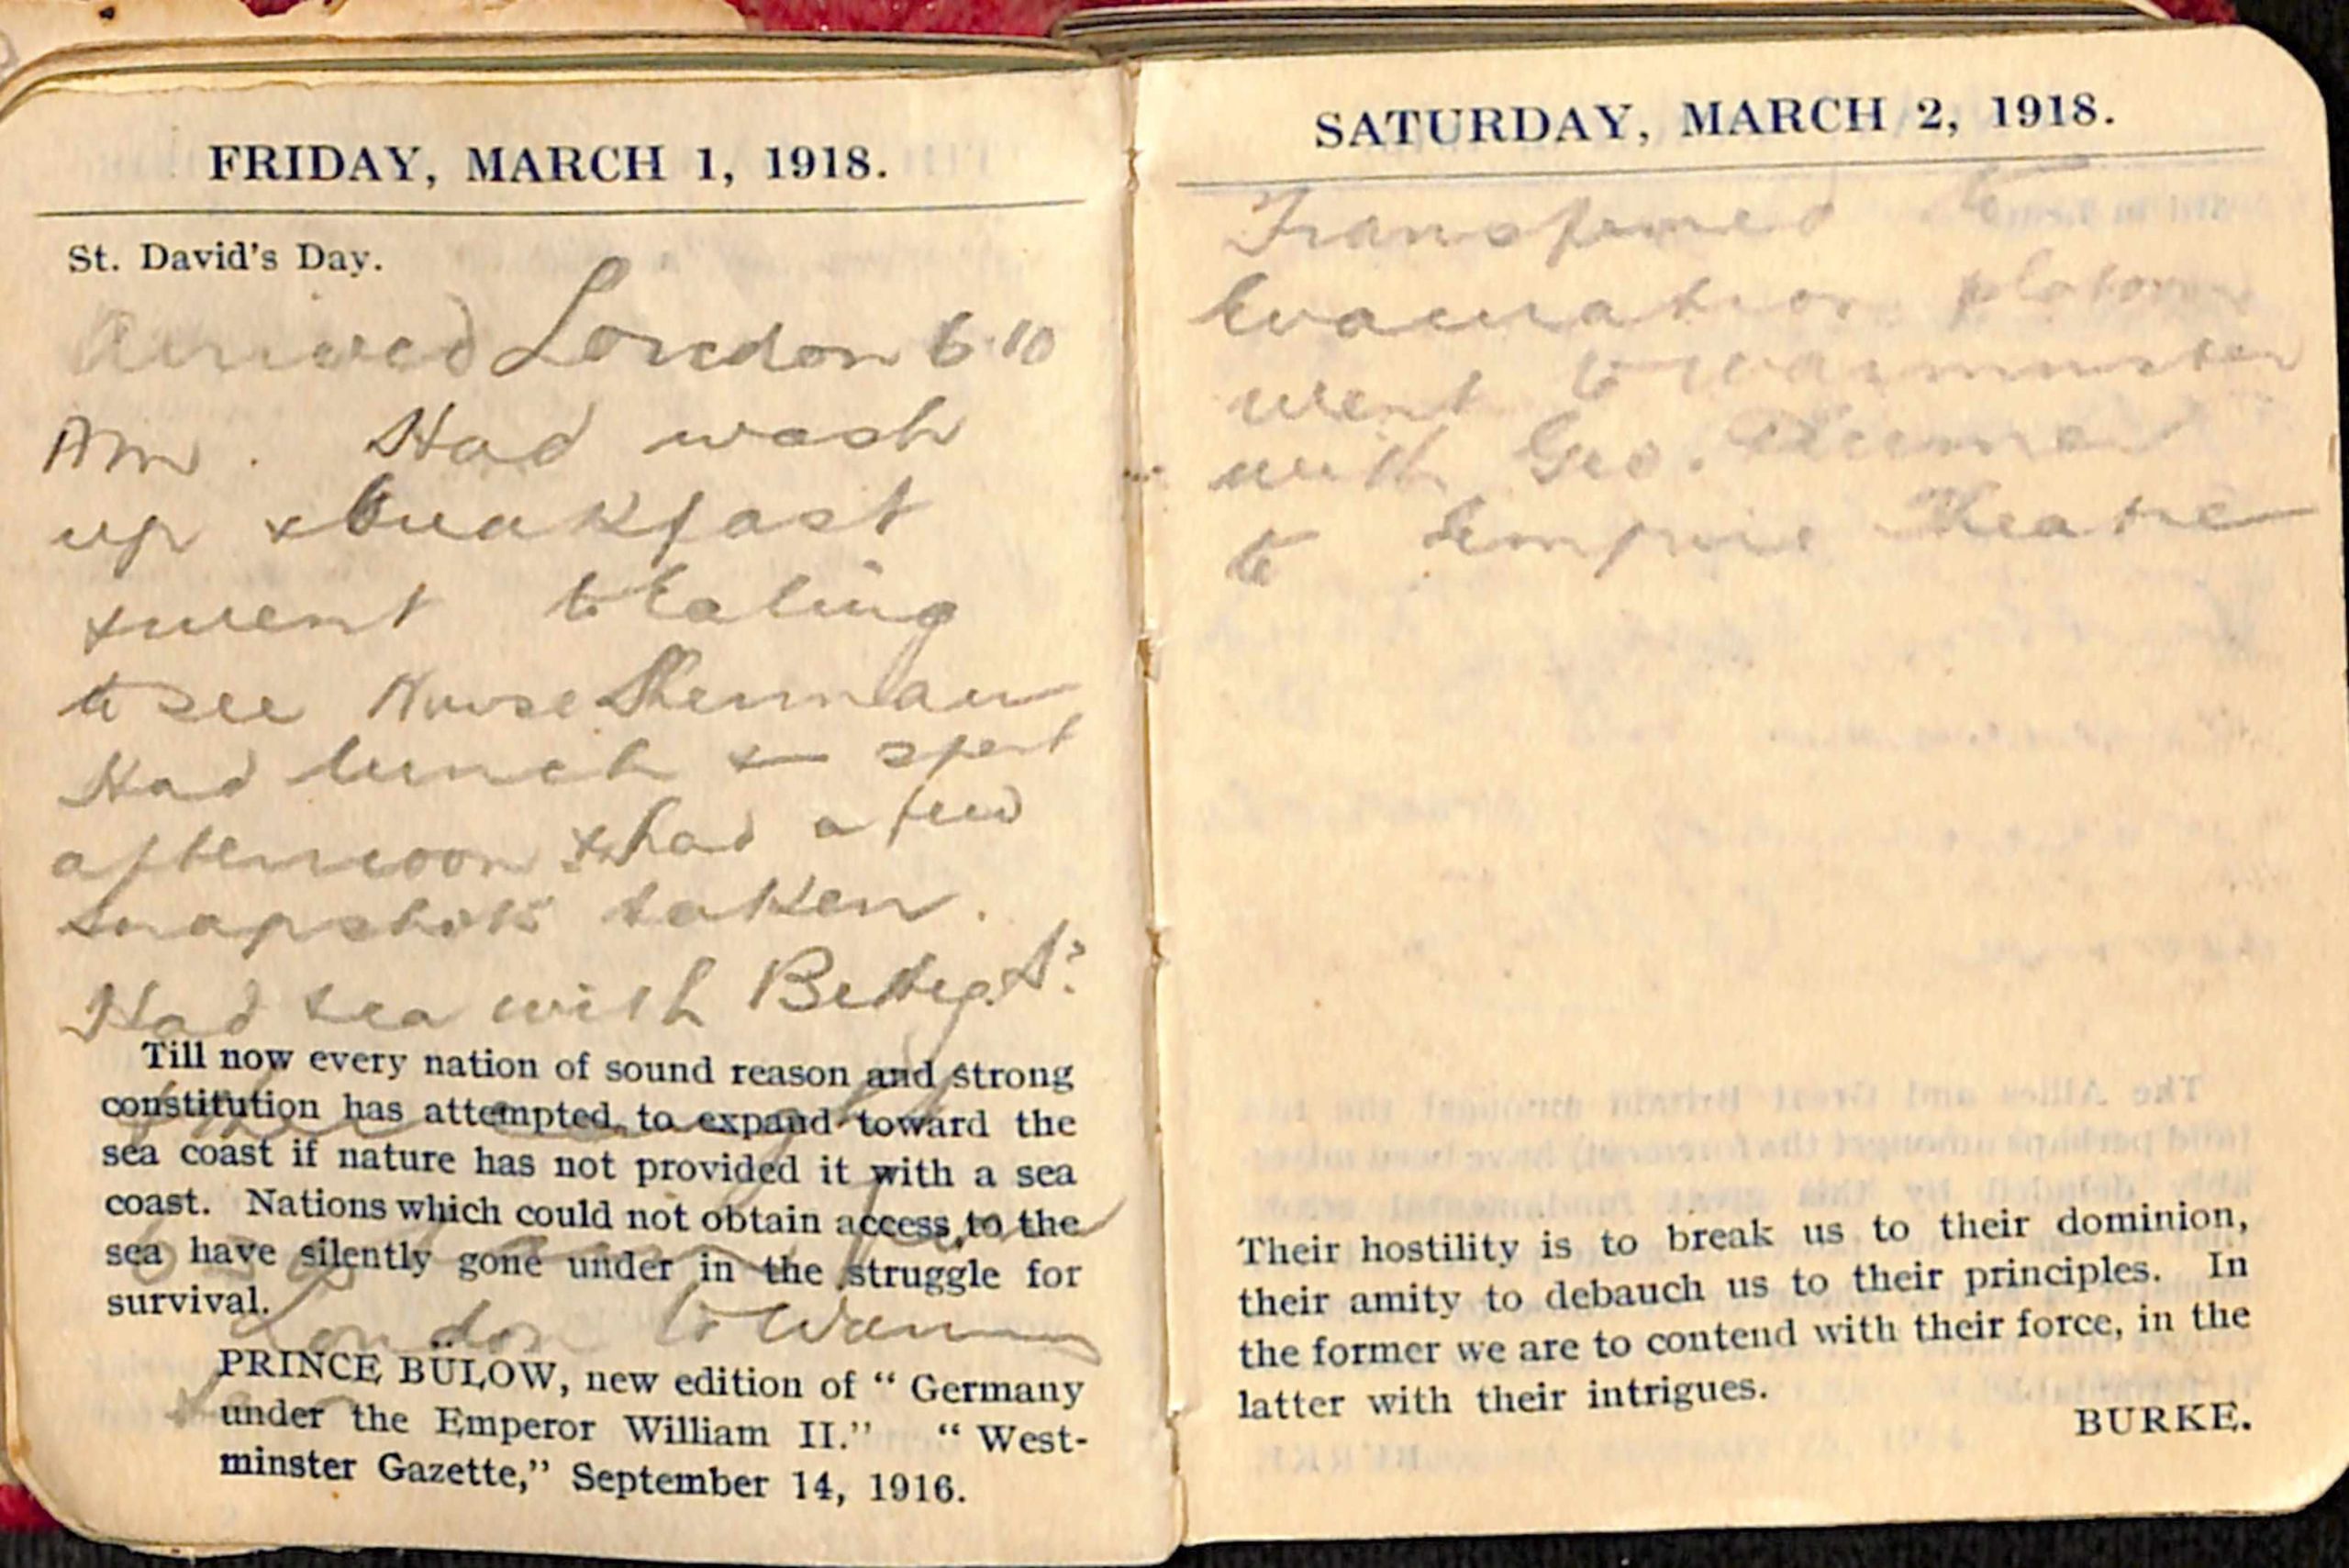 FRIDAY, MARCH 1, 1918.
St. David's Day.
Arrived London 6.10
AM. Had wash
up & breakfast
& went to Ealing
to see Nurse Sherman
Had lunch & spent
afternoon & had a few
snapshots taken.
Had tea with
Till now every nation of sound reason and strong
constitution has attempted to expand toward the
then caught
sea coast if nature has not provided it with a sea
coast. Nations which could not obtain access to the
sea have silently gone under in the struggle for
survival.
London to Warmin
PRINCE BÜLOW, new edition of “ Germany
ster
under the Emperor William II.” “ West-
minster Gazette,” September 14, 1916.
SATURDAY, MARCH 2, 1918.
Transferred to
Evacuation platoon
went to Warminster
with Geo.
to Empire Theatre
Their hostility is to break us to their dominion,
their amity to debauch us to their principles. In
the former we are to contend with their force, in the
latter with their intrigues.
BURKE.